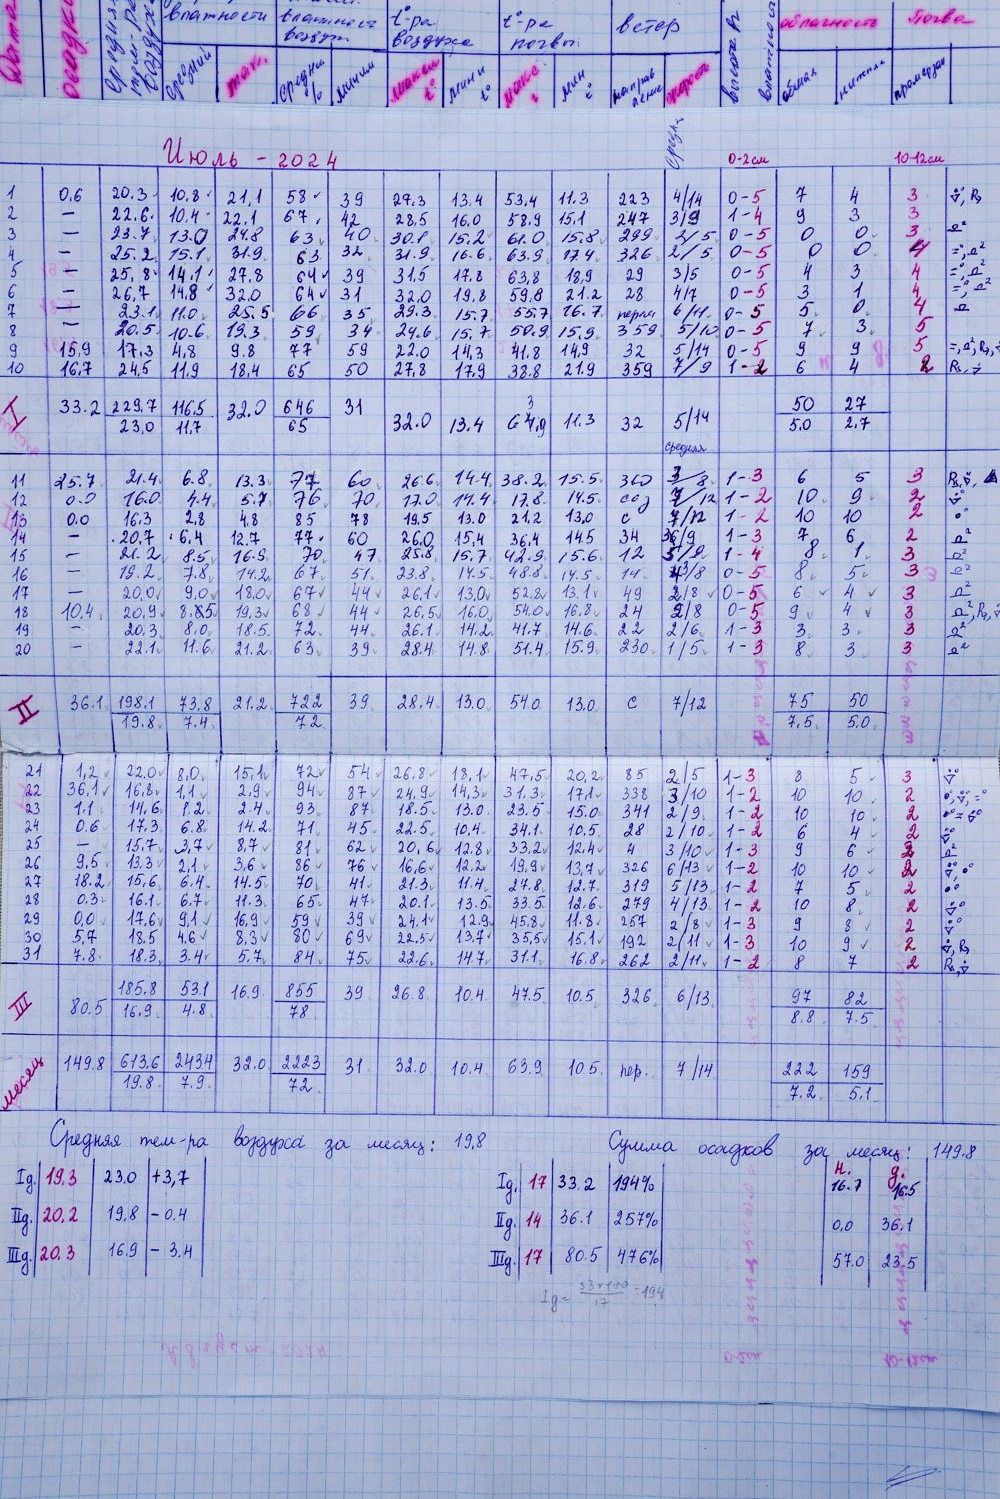 Дата осадки средняя тем-ра воздуха влажности влажность воздух t°-ра воздуха t°-ра почвы ветер высота влажност облачность Почва
средний макс. средн. миним максим t° мини t° макс. t мин t° направление скорость общая нижняя промерзан
Июль - 2024 средн 0-2см 10-12см
1 0,6 20.3 10.8 21,1 58 39 29.3 13.4 53,4 11.3 223 4/14 0-5 7 4 3
2 — 22.6 10.4 22.1 67 42 28,5 16.0 58.9 15.1 247 3/9 1-4 9 3 3
3 — 23.7 13.0 24.8 63 40 30.1 15.2 61.0 15.8 299 2/5 0-5 0 0 3
4 — 25.2 15.1 31.9 63 32 31.9 16.6 63.9 17.4 326 2/5 0-5 0 0 4
5 — 25,8 14,1 27.8 64 39 31.5 17.8 63,8 18,9 29 3/5 0-5 4 3 4
6 — 26,7 14.8 32.0 64 31 32.0 19.8 59.8 21.2 28 4/7 0-5 3 1 4
7 — 23.1 11.0 25.5 66 35 29.3 15.7 55.7 16.7 перем 6/11 0-5 5 0 4
8 — 20.5 10.6 19.3 59 34 24.6 15.7 50.9 15,9 359 5/10 0-5 7 3 5
9 15,9 17,3 4,8 9.8 77 59 22.0 14,3 41.8 14,9 32 5/14 0-5 9 9 5
10 16,7 24,5 11,9 18,4 65 50 27,8 17.9 38.8 21.9 359 7/9 1-2 6 4 2
I 33.2 229.7 116.5 32.0 646 31 32.0 13.4 64,9 11.3 32 5/14 50 27
23,0 11,7 65 5.0 2.7
средняя
11 25.7 21.4 6.8 13.3 77 60 26.6 14.4 38.2 15.5 360 3/8 1-3 6 5 3
12 0.0 16.0 4.4 5.7 76 70 17.0 14.4 17.8 14.5 сев 7/12 1-2 10 9 2
13 0.0 16.3 2,8 4.8 85 78 19,5 13.0 21,2 13,0 с 7/12 1-2 10 10 2
14 — 20,7 6.4 12.7 77 60 26.0 15,4 36,4 14.5 34 6/9 1-3 7 6 2
15 — 21.2 8.5 16.9 70 47 25.8 15.7 42.9 15.6 12 5/9 1-4 8 1 3
16 — 19.2 7.8 14.2 67 51 23.8 14.5 48.8 14.5 14 3/8 0-5 8 5 3
17 — 20,0 9,0 18,0 67 44 26.1 13,0 52.8 13.1 49 2/8 0-5 6 4 3
18 10,4 20,9 8.5 19,3 68 44 26,5 16.0 54.0 16.8 24 2/8 0-5 9 4 3
19 — 20.3 8.0 18.5 72 44 26.1 14.2 41.7 14.6 22 2/6 1-3 3 3 3
20 — 22.1 11.6 21.2 63 39 28.4 14.8 51.4 15.9 230 1/5 1-3 8 3 3
II 36.1 198.1 73.8 21.2 722 39 28.4 13.0 54.0 13.0 с 7/12 75 50
19.8 7.4 72 7,5 5.0
21 1,2 22.0 8,0 15,1 72 54 26,8 18,1 47,5 20,2 85 2/5 1-3 8 5 3
22 36,1 16,8 1,1 2,9 94 87 24,9 14,3 31.3 17,1 338 3/10 1-2 10 10 2
23 1.1 14.6 1.2 2.4 93 87 18.5 13.0 23.5 15.0 341 2/9 1-2 10 10 2
24 0.6 17.3 6.8 14.2 71 45 22.5 10.4 34.1 10.5 28 2/10 1-2 6 4 2
25 — 15.7 3,7 8,7 81 62 20,6 12.8 33.2 12.4 4 3/10 1-3 9 6 2
26 9,5 13.3 2,1 3,6 86 76 16,6 12,2 19,9 13,7 326 6/13 1-2 10 10 2
27 18.2 15,6 6.4 14.5 70 41 21.3 11.4 27.8 12.7 319 5/13 1-2 7 5 2
28 0.3 16.1 6.7 11.3 65 47 20.1 13.5 33.5 12.6 279 4/13 1-2 10 8 2
29 0,0 17,6 9,1 16,9 59 39 24,1 12,9 45,8 11.8 257 2/8 1-3 9 8 2
30 5,7 18,5 4.6 8,3 80 69 22,5 13.7 35,5 15,1 192 2/11 1-3 10 9 2
31 7.8 18.3 3.4 5.7 84 75 22.6 14.7 31.1 16.8 262 2/11 1-2 8 7 2
III 80.5 185.8 53.1 16.9 855 39 26.8 10.4 47.5 10.5 326 6/13 97 82
16.9 4.8 78 8.8 7.5
месяц 149.8 613.6 243.4 32.0 2223 31 32.0 10.4 63.9 10.5 пер. 7/14 222 159
19.8 7.9 72 7.2 5.1
Средняя тем-ра воздуха за месяц: 19,8 Сумма осадков за месяц: 149.8
н. д.
Iд. 19.3 23.0 +3,7 Iд. 17 33.2 194% 16.7 16.5
IIд. 20.2 19,8 - 0.4 IIд. 14 36.1 257% 0.0 36,1
IIIд. 20.3 16.9 - 3.4 IIIд. 17 80.5 476% 57.0 23.5
Iд = 33×100/17 = 194